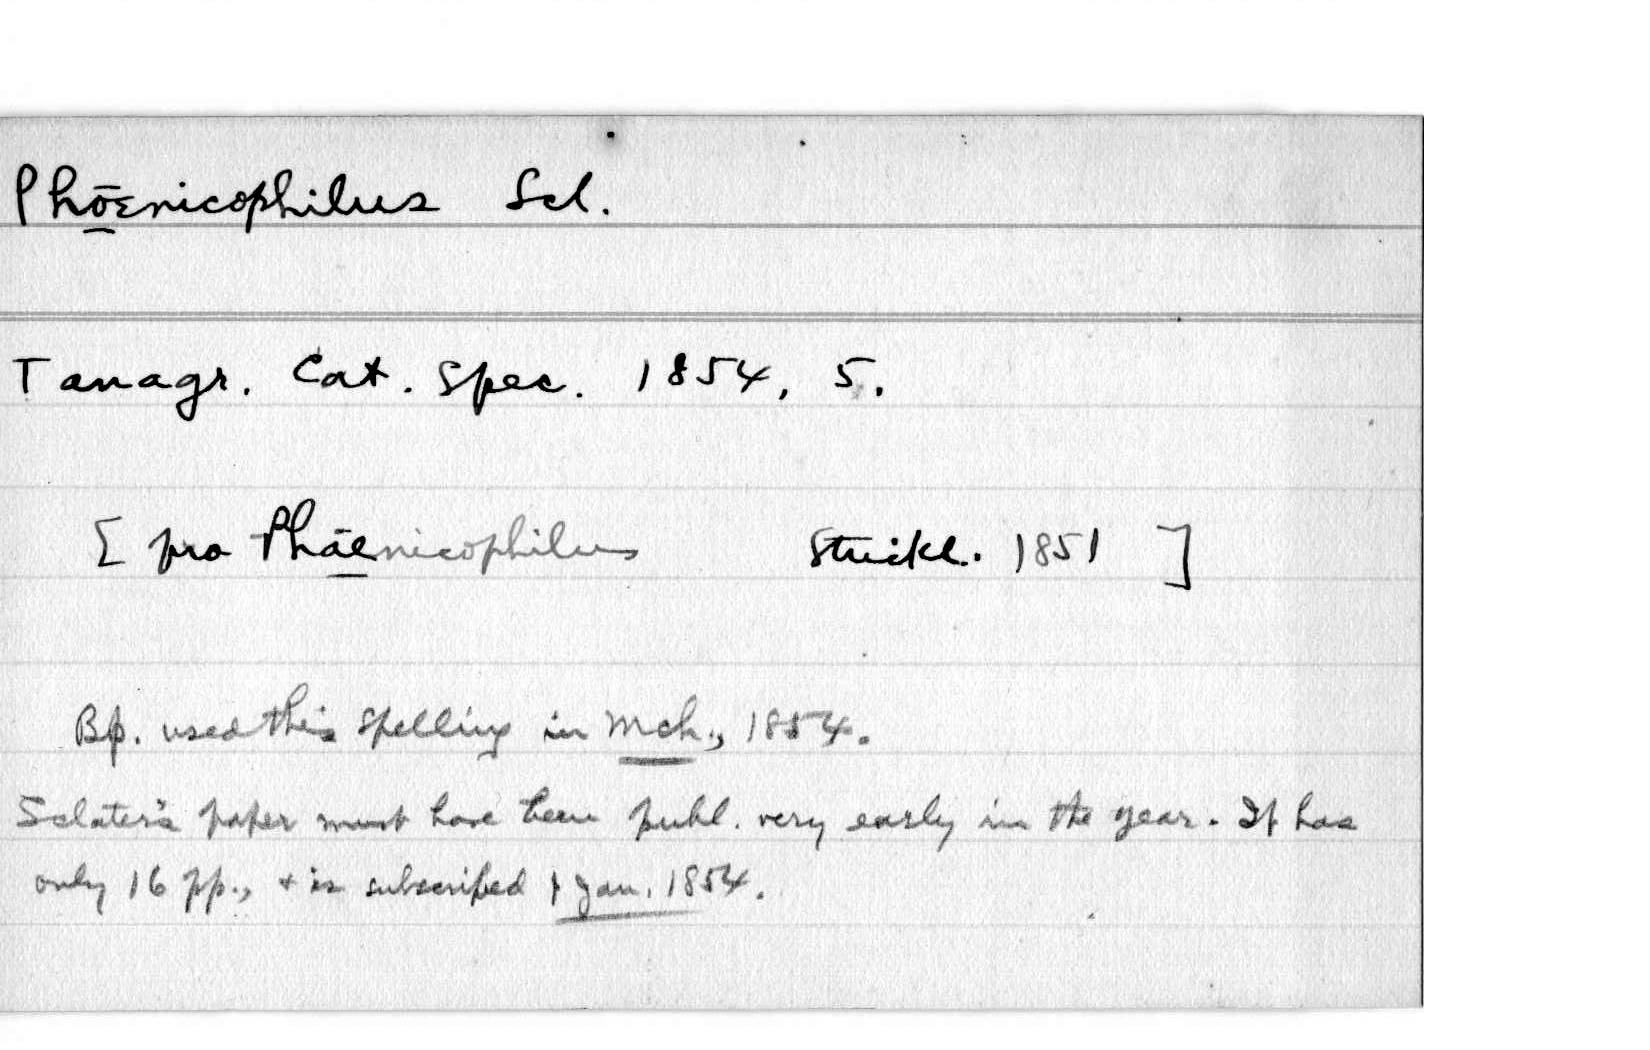 Phœnicophilus Scl.
Tanagr. Cat. Spec. 1854, 5.
[ pro Phænicophilus Strickl. 1851 ]
Bp. used this spelling in Mch., 1854.
Sclater's paper must have been publ. very early in the year. It has
only 16 pp., & is subscribed 1 Jan. 1854.